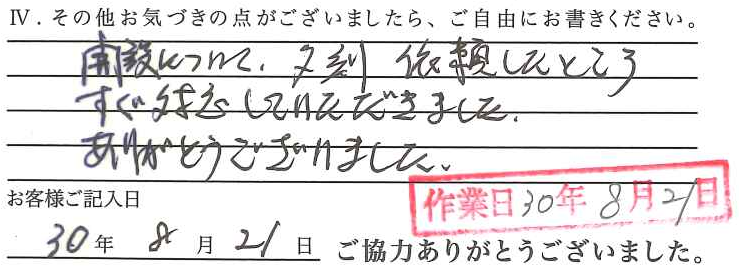 Ⅳ．その他お気づきの点がございましたら、ご自由にお書きください。
開設について、夕刻 依頼したところ
すぐ対応していただきました。
ありがとうございました。
お客様ご記入日
作業日30年 8月21日
30年 8月 21日 ご協力ありがとうございました。